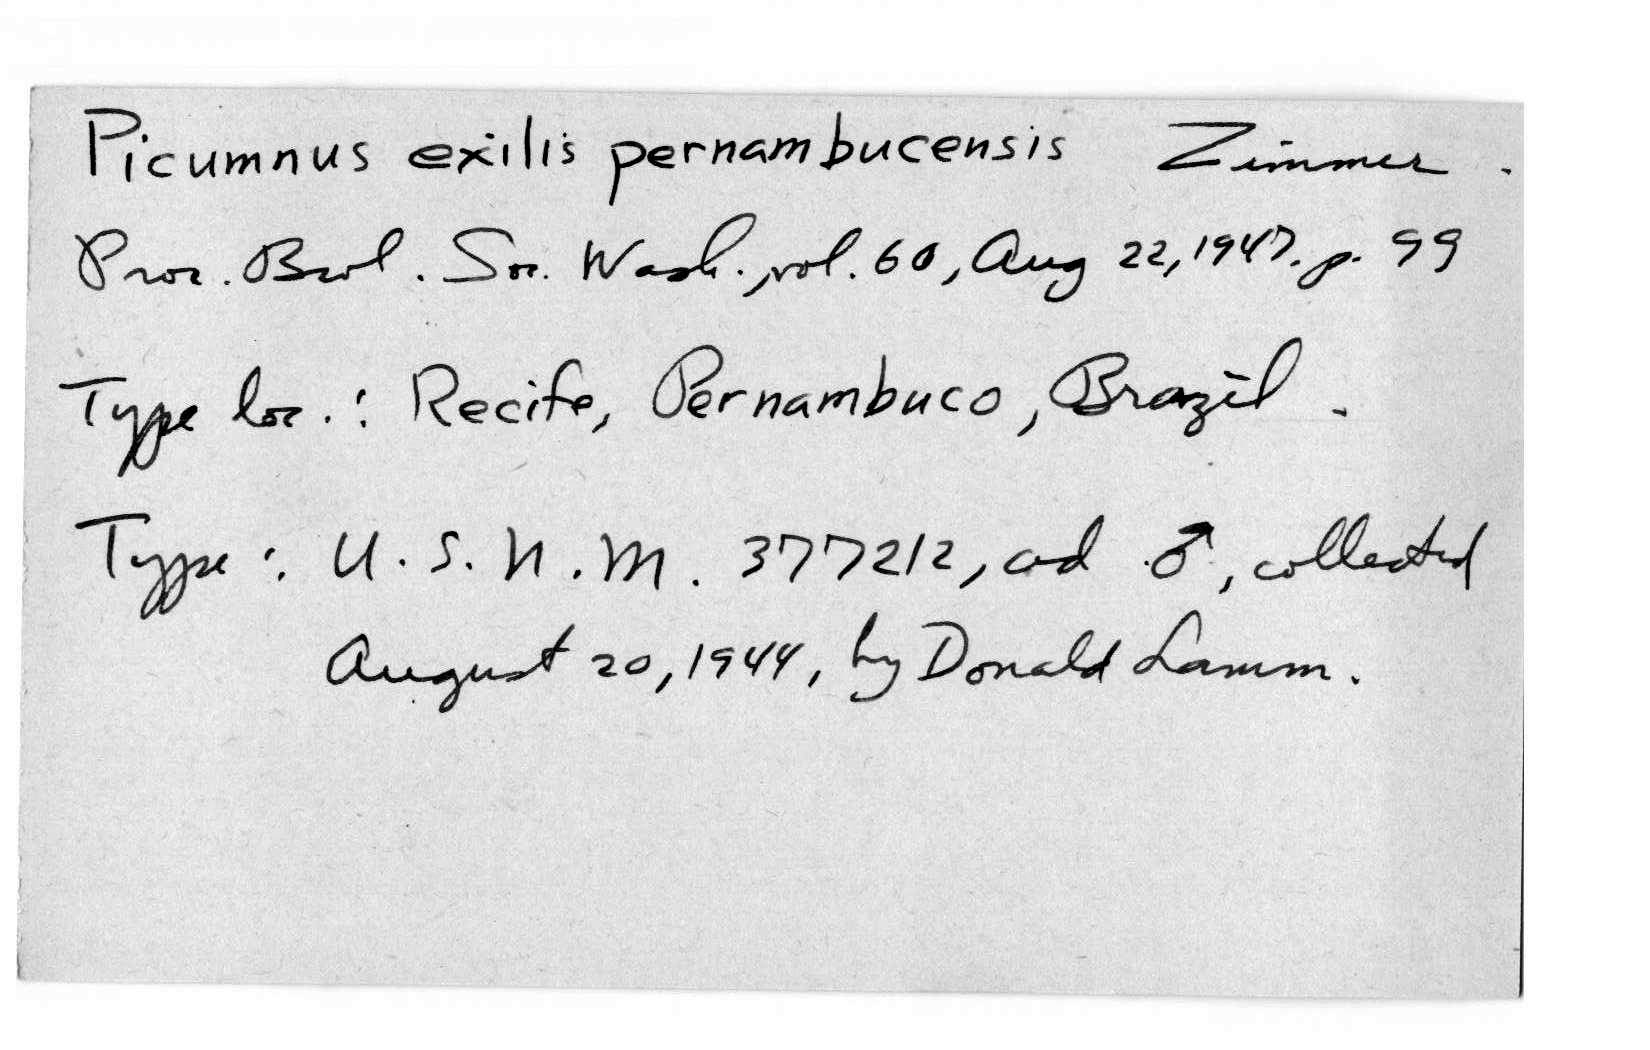 Picumnus exilis pernambucensis Zimmer.
Proc. Biol. Soc. Wash., vol. 60, Aug 22, 1947. p. 99
Type loc.: Recife, Pernambuco, Brazil.
Type: U.S.N.M. 377212, ad ♂, collected
August 20, 1944, by Donald Lamm.